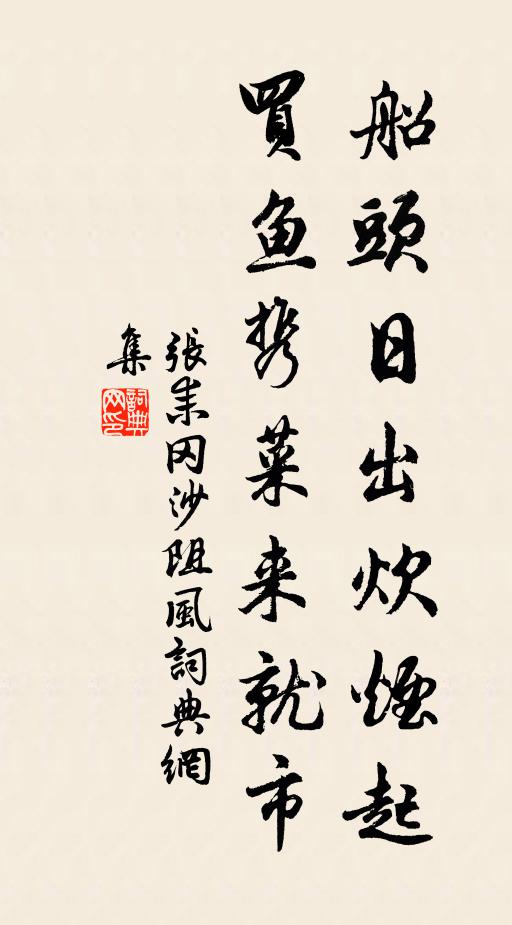 船頭日出炊煙起
買鱼携菜来就市
張耒罔沙阻風詞典網
集
詞典網印